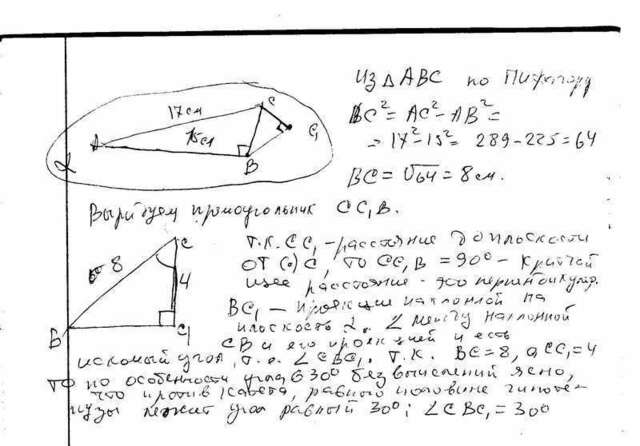 Из △ ABC по Пифагору
BC² = AC² - AB² =
= 17² - 15² = 289 - 225 = 64
BC = √64 = 8 см.
17 см
15 см
A
B
C
C₁
α
Вырисуем прямоугольник CC₁B.
C
8
4
Б
C₁
Т.К. CC₁ - расстояние до плоскости
от (·) C, то CC₁B = 90° -
расстояние - это перпендикуляр.
BC₁ - проекция наклонной на
плоскость α. ∠ между наклонной
CB и его проекцией и есть
искомый угол, т.е. ∠CBC₁. Т.К. BC = 8, а CC₁ = 4
то по особенности угла в 30° без вычислений ясно,
что против катета, равного половине гипоте-
нузы лежит угол равный 30°; ∠CBC₁ = 30°